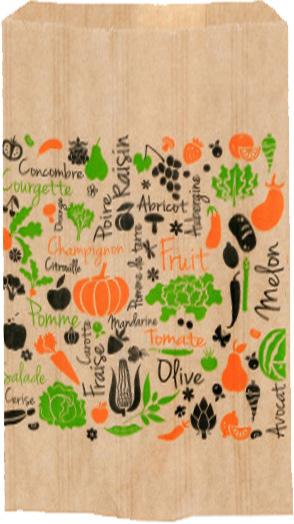 Concombre
Courgette
Poire
Raisin
Abricot
Aubergine
Champignon
Citrouille
Pomme de terre
Fruit
Melon
Pomme
Carotte
Fraise
Mandarine
Tomate
Olive
Salade
Cerise
Avocat